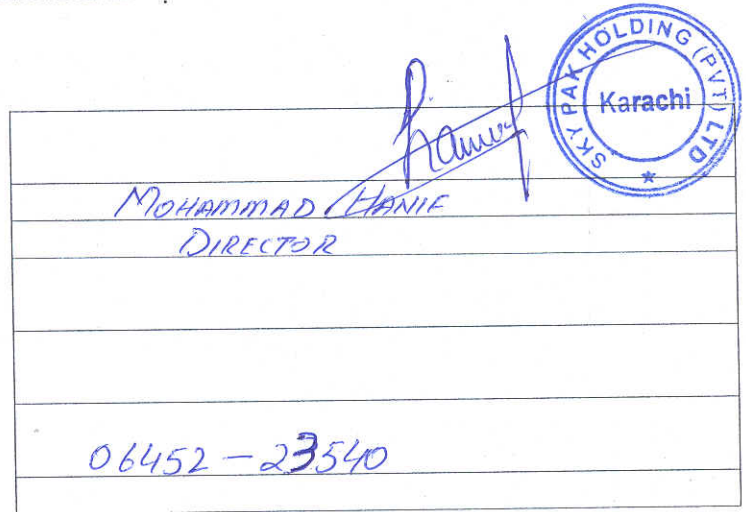 SKY PAK HOLDING (PVT) LTD
Karachi
MOHAMMAD HANIF
DIRECTOR
06452-23540